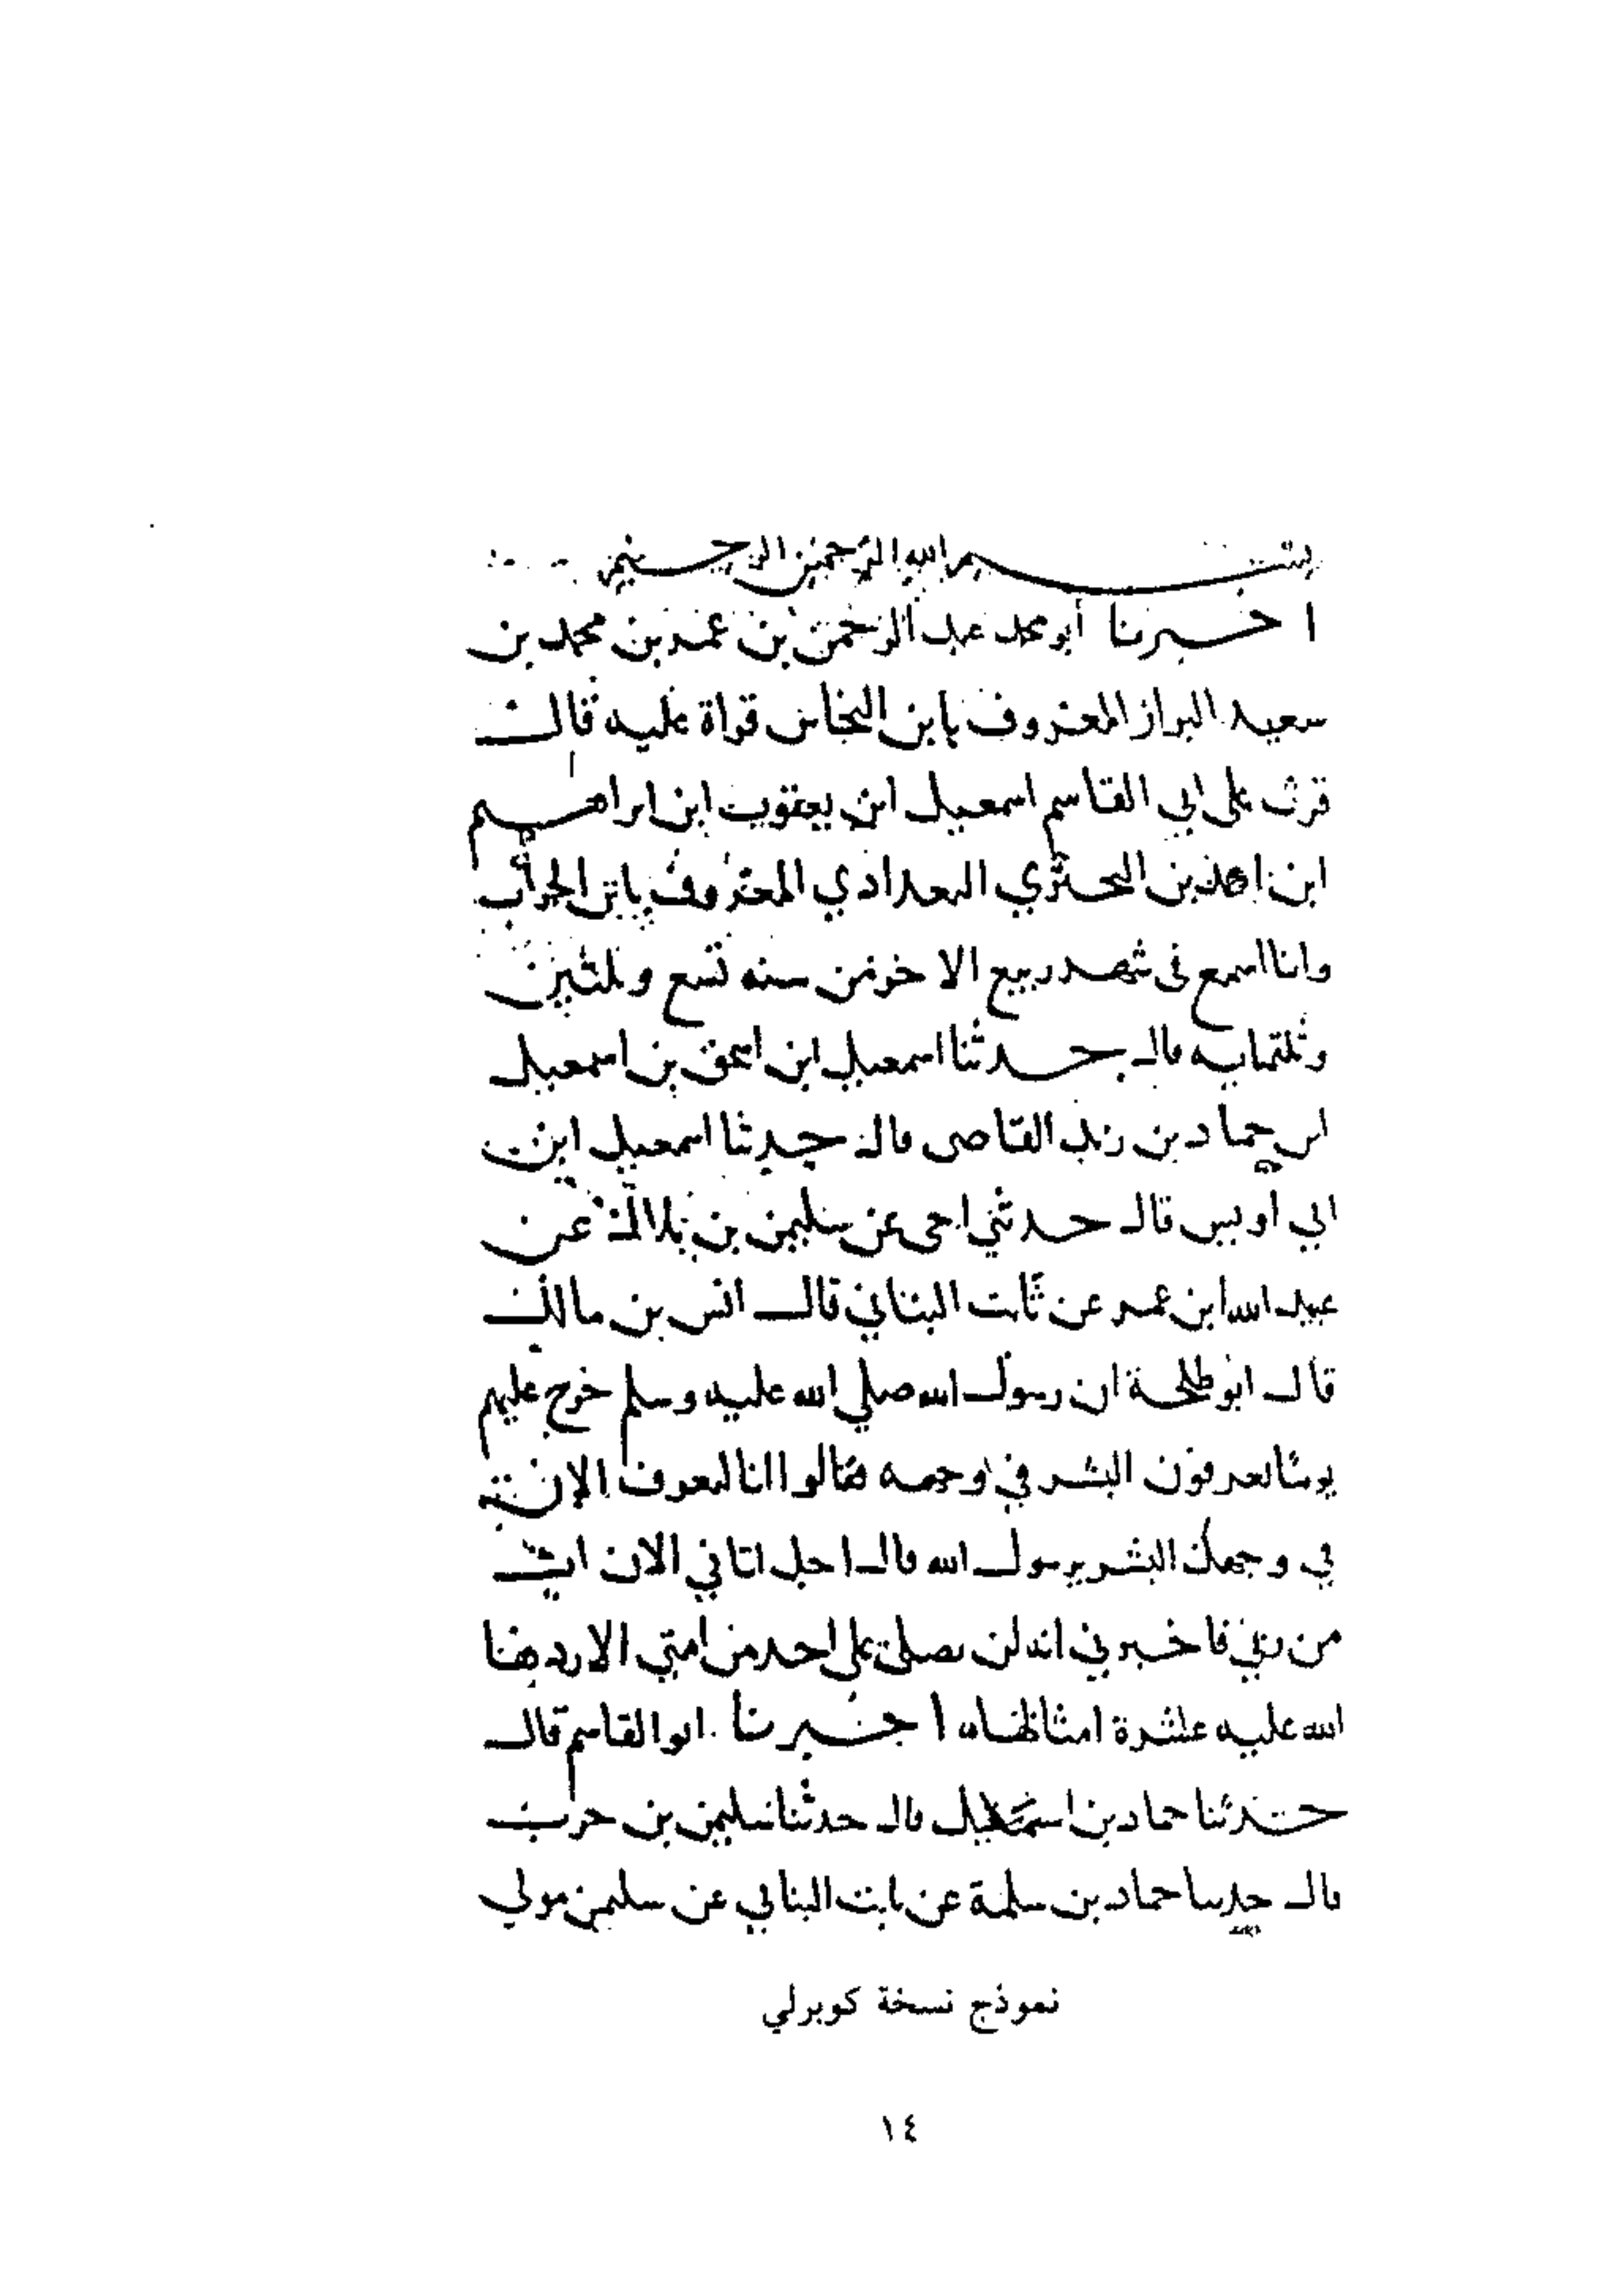 بسم الله الرحمن الرحيم
اخبرنا أبو محمد عبد الرحمن بن عمر بن محمد بن
سعيد البزاز المعروف بابن النحاس قراة عليه قال
قرئ على ابي القاسم اسمعيل ابن يعقوب ابن ابراهيم
ابن احمد بن البحتري البغدادي المعروف بابن الجراب
وانا اسمع في شهر ربيع الاخر من سنه تسع وثلثين
وثلثمايه قال حدثنا اسمعيل ابن اسحق بن اسمعيل
ابن حماد بن زيد القاضي قال حدثنا اسمعيل ابن
ابي اويس قال حدثني اخي عن سليمن بن بلال عن
عبيد الله ابن عمر عن ثابت البناني قال انس بن مالك
قال ابو طلحة ان رسول الله صلي الله عليه وسلم خرج عليهم
يوما يعرفون البشر في وجهه فقالوا انا لنعرف الان
في وجهك البشر يرسول الله قال اجل اتاني الان ات
من ربي فاخبرني انه لن يصلي علي احد من امتي الا ردها
الله عليه عشرة امثالها اخبرنا ابو القاسم قال
حدثنا حماد بن اسمعيل قال حدثنا سليمن بن حرب
قال حدثنا حماد بن سلمة عن ثابت البناني عن سليمن مولي
نموذج نسخة كوبرلي
١٤